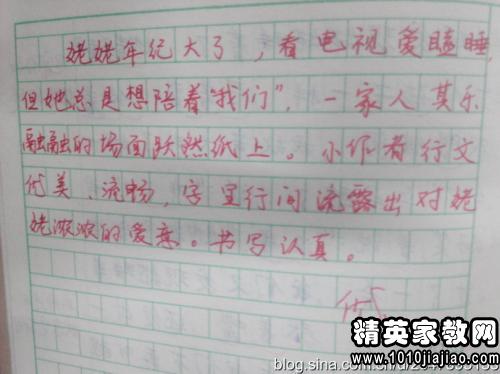 姥姥年纪大了，看电视爱瞌睡，
但她总是想陪着“我们”，一家人其乐
融融的场面跃然纸上。小作者行文
优美、流畅，字里行间流露出对姥
姥浓浓的爱意。书写认真。
优
精英家教网
www.1010jiajiao.com